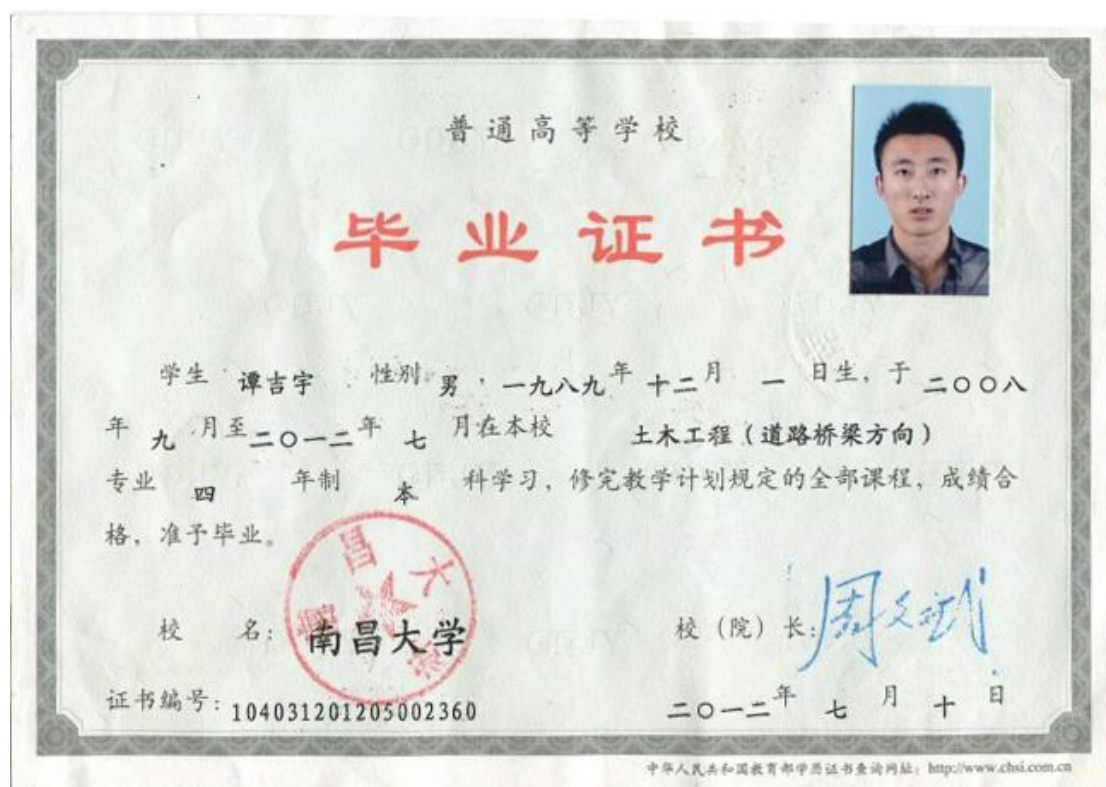 普通高等学校
毕业证书
学生 谭吉宇 性别 男 , 一九八九 年 十二 月 一 日生, 于 二〇〇八
年 九 月至 二〇一二 年 七 月在本校 土木工程（道路桥梁方向）
专业 四 年制 本 科学习, 修完教学计划规定的全部课程, 成绩合
格, 准予毕业。
校 名: 南昌大学 校（院）长: 周文斌
证书编号: 104031201205002360 二〇一二 年 七 月 十 日
中华人民共和国教育部学历证书查询网址: http://www.chsi.com.cn